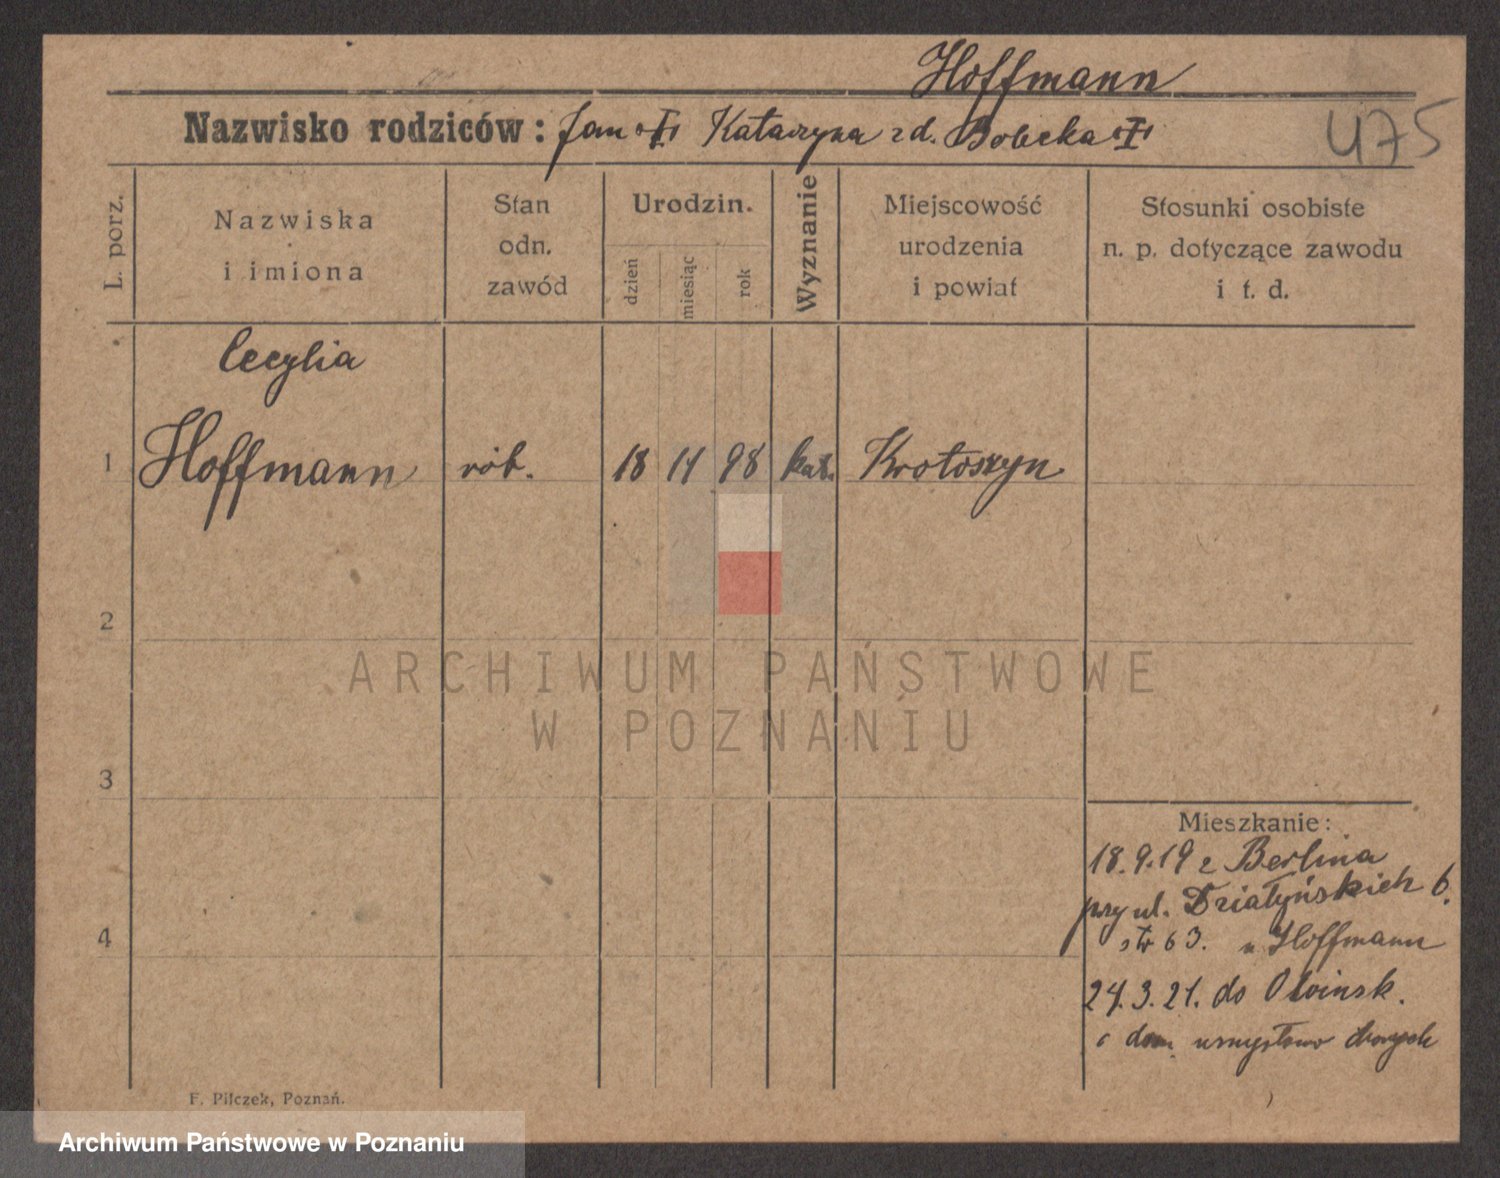 Hoffmann
Nazwisko rodziców: Jan Katarzyna z d. Bobeka
475
L. porz.
Nazwiska
i imiona
Stan
odn.
zawód
Urodzin.
dzień
miesiąc
rok
Wyznanie
Miejscowość
urodzenia
i powiat
Stosunki osobiste
n. p. dotyczące zawodu
i t. d.
Cecylia
1 Hoffmann rob. 18 11 98 kat. Krotoszyn
2
3
4
Mieszkanie:
18.9.19 z Berlina
przy ul. Działyńskich 6.
63. u Hoffmann
24.3.21. do Owinsk.
dom umysłowo chorych
F. Pilczek, Poznań.
ARCHIWUM PAŃSTWOWE
W POZNANIU
Archiwum Państwowe w Poznaniu